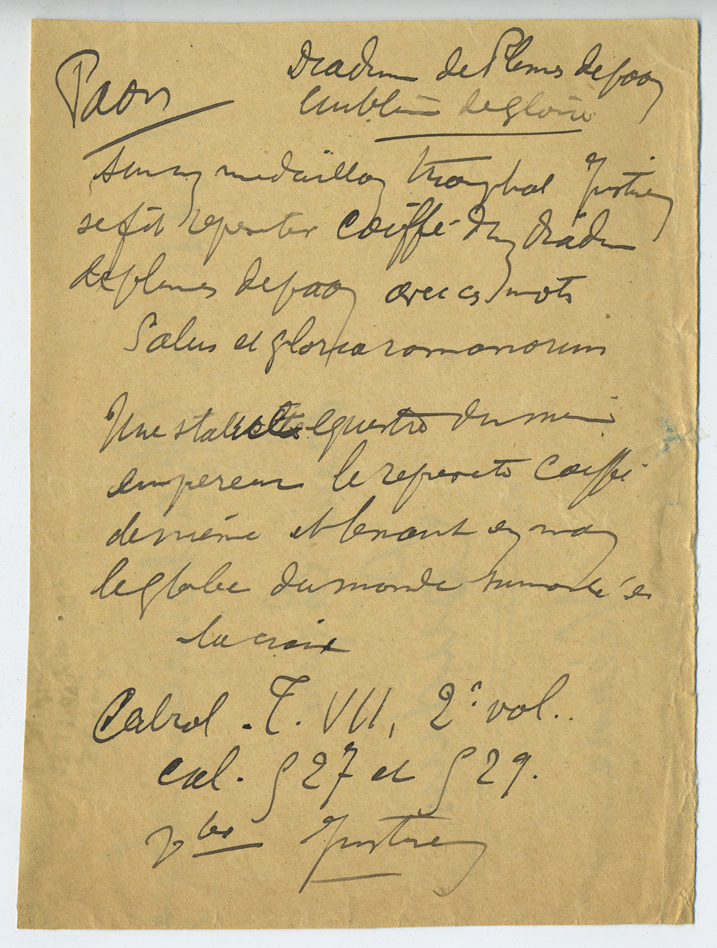 Paon
Diadème de Plumes de paon
emblème de gloire
Sur un médaillon triomphal Justinien
se fit représenter coiffé d'un diadème
de plumes de paon avec ces mots
Salus et gloria romanorum
Une statuette équestre du même
empereur le représente coiffé
de même et tenant en main
le globe du monde surmonté de
la croix
Cabrol. T. VII, 2e vol..
col. § 27 et § 29.
Justinien